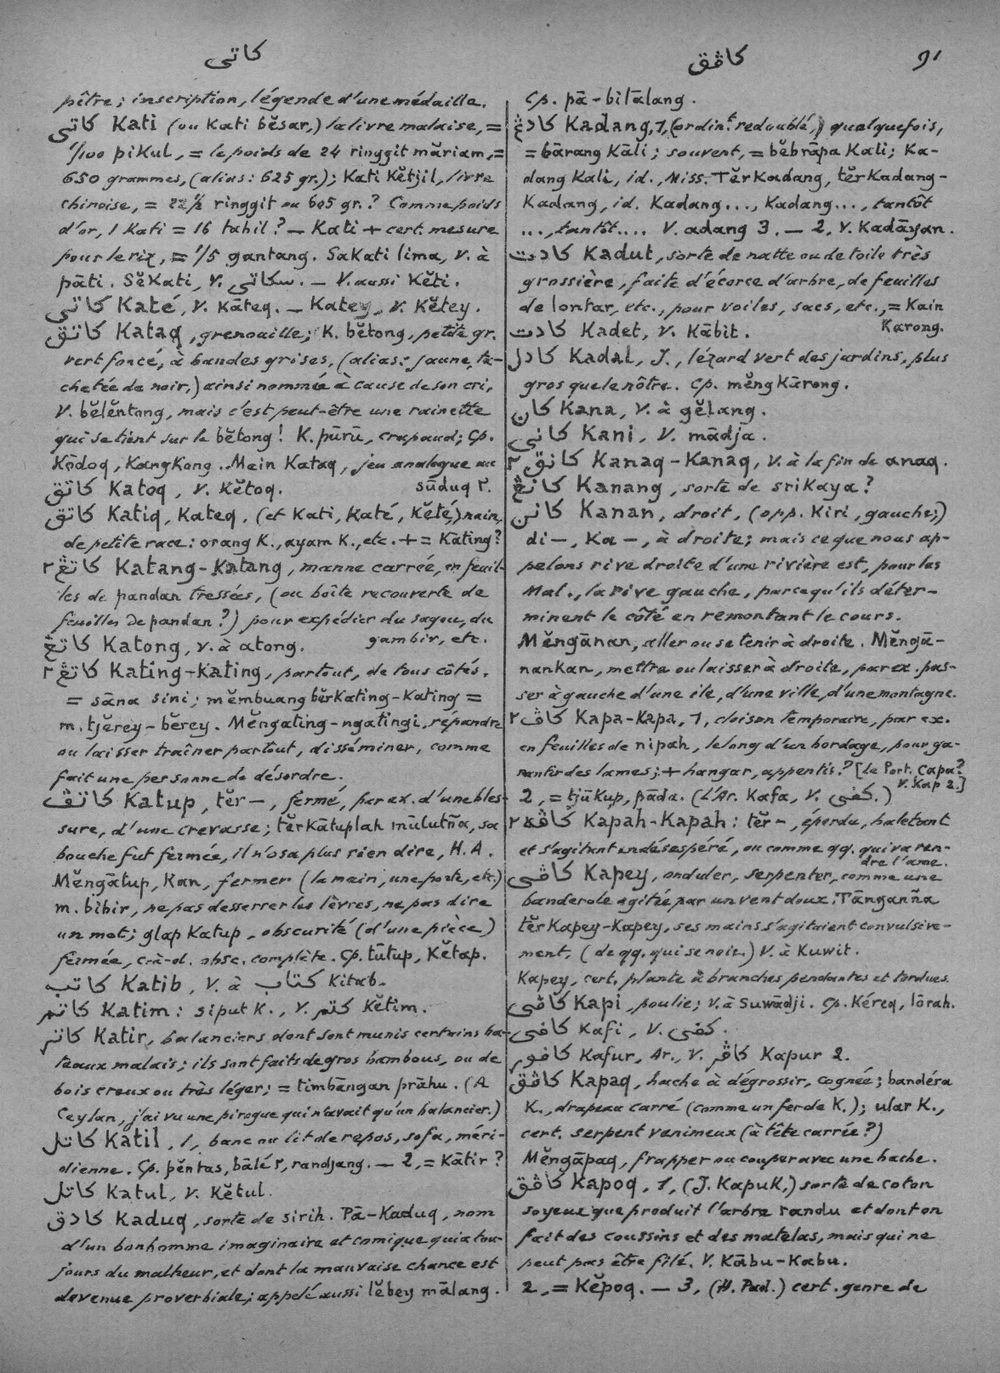 كاتي
كاڤق
91
pître; inscription, légende d'une médaille.
كاتي Kati (ou Kati bĕsar,) la livre malaise, =
1/100 pikul, = le poids de 24 ringgit māriam, =
650 grammes, (alias: 625 gr.); Kati Kĕtjil, livre
chinoise, = 22½ ringgit ou 605 gr.? Comme poids
d'or, 1 Kati = 16 tahil? — Kati + cert. mesure
pour le riz, = 1/5 gantang. Sakati lima, V. à
pāti. Sĕkati, V. سكاتي. — V. aussi Kĕti.
كاتي Katé, V. Kāteq. — Katey, V. Kĕtey.
كاتق Kataq, grenouille; K. bĕtong, petite gr.
vert foncé, à bandes grises, (alias: jaune, ta-
chetée de noir,) ainsi nommée à cause de son cri,
V. bĕlĕntong, mais c'est peut-être une rainette
qui se tient sur le bĕtong! K. pūrū, crapaud; Cp.
Kōdoq, Kangkong. Main Kataq, jeu analogue au
sūduq ٢.
كاتق Katoq, V. Kĕtoq.
كاتق Katiq, Kateq, (et Kati, Katé, Kĕté,) nain,
de petite race: orang K., ayam K., etc. + = Kāting?
كاتڠ ٢ Katang-Katang, manne carrée, en feuil-
les de pandan tressées, (ou boîte recouverte de
feuilles de pandan?) pour expédier du sagou, du
gambir, etc.
كاتڠ Katong, V. à atong.
كاتڠ ٢ Kating-Kating, partout, de tous côtés.
= sāna sini; mĕmbuang bĕrKating-Kating =
m. tjĕrey-bĕrey. Mĕngating-ngatingi, répandre
ou laisser traîner partout, disséminer, comme
fait une personne de désordre.
كاتڤ Katup, tĕr—, fermé, par ex. d'une bles-
sure, d'une crevasse; tĕrKātuplah mūlutña, sa
bouche fut fermée, il n'osa plus rien dire, H.A.
Mĕngātup, Kan, fermer (la main, une porte, etc.)
m. bibir, ne pas desserrer les lèvres, ne pas dire
un mot; glap Katup, obscurité (d'une pièce)
fermée, c.-à-d. obsc. complète. Cp. tūtup, Kĕtap.
كاتب Katib, V. à كتاب Kitab.
كاتم Katim: siput K., V. كتم Kĕtim.
كاتر Katir, balanciers dont sont munis certains ba-
teaux malais; ils sont faits de gros bambous, ou de
bois creux ou très léger; = timbāngan prāhu. (A
Ceylan, j'ai vu une pirogue qui n'avait qu'un balancier.)
كاتل Kātil, 1, banc ou lit de repos, sofa, méri-
dienne. Cp. pĕntas, bālé ٢, randjang. — 2, = Kātir?
كاتل Katul, V. Kĕtul.
كادق Kaduq, sorte de sirih. Pā-Kaduq, nom
d'un bonhomme imaginaire et comique qui a tou-
jours du malheur, et dont la mauvaise chance est
devenue proverbiale; appelé aussi lĕbey mālang.
Cp. pā-bilālang.
كادڠ Kadang, 1, (ordin.t redoublé,) quelquefois,
= bārang Kāli; souvent, = bĕbrāpa Kali; Ka-
dang Kali, id., Miss. TĕrKadang, tĕrKadang-
Kadang, id. Kadang..., Kadang..., tantôt
..., tantôt.... V. adang 3. — 2, V. Kadāyan.
كادت Kadut, sorte de natte ou de toile très
grossière, faite d'écorce d'arbre, de feuilles
de lontar, etc., pour voiles, sacs, etc., = Kain
Karong.
كادت Kadet, V. Kābit.
كادل Kadal, J., lézard vert des jardins, plus
gros que le nôtre. Cp. mĕngKārong.
كان Kana, V. à gĕlang.
كاني Kani, V. mādja.
كانق ٢ Kanaq-Kanaq, V. à la fin de anaq.
كانڠ Kanang, sorte de sriKaya?
كانن Kanan, droit, (opp. Kiri, gauche;)
di—, Ka—, à droite; mais ce que nous ap-
pelons rive droite d'une rivière est, pour les
Mal., la rive gauche, parce qu'ils déter-
minent le côté en remontant le cours.
Mĕngānan, aller ou se tenir à droite. Mĕngā-
nankan, mettre ou laisser à droite, par ex. pas-
ser à gauche d'une île, d'une ville, d'une montagne.
كاڤ ٢ Kapa-Kapa, 1, cloison temporaire, par ex.
en feuilles de nipah, le long d'un bordage, pour ga-
rantir des lames; + hangar, appentis? [le Port. Capa?
V. Kap 2.]
2, = tjūKup, pāda. (L'Ar. Kafa, V. كفى.)
كاڤه ٢ Kapah-Kapah: tĕr—, éperdu, haletant
et s'agitant en désespéré, ou comme qq. qui va ren-
dre l'âme.
كاڤي Kapey, onduler, serpenter, comme une
banderole agitée par un vent doux: Tānganña
tĕrKapey-Kapey, ses mains s'agitaient convulsive-
ment, (de qq. qui se noie.) V. à Kuwit.
Kapey, cert. plante à branches pendantes et tordues.
كاڤي Kapi, poulie; V. à Suwādji. Cp. Kéreq, lōrah.
كافي Kafi, V. كفى.
كافور Kafur, Ar., V. كاڤر Kapur 2.
كاڤق Kapaq, hache à dégrossir, cognée; bandéra
K., drapeau carré (comme un fer de K.); ular K.,
cert. serpent venimeux (à tête carrée?)
Mĕngāpaq, frapper ou couper avec une hache.
كاڤق Kapoq, 1, (J. Kapuk,) sorte de coton
soyeux que produit l'arbre randu et dont on
fait des coussins et des matelas, mais qui ne
peut pas être filé. V. Kābu-Kabu.
2, = Kĕpoq. — 3, (H. Pad.) cert. genre de